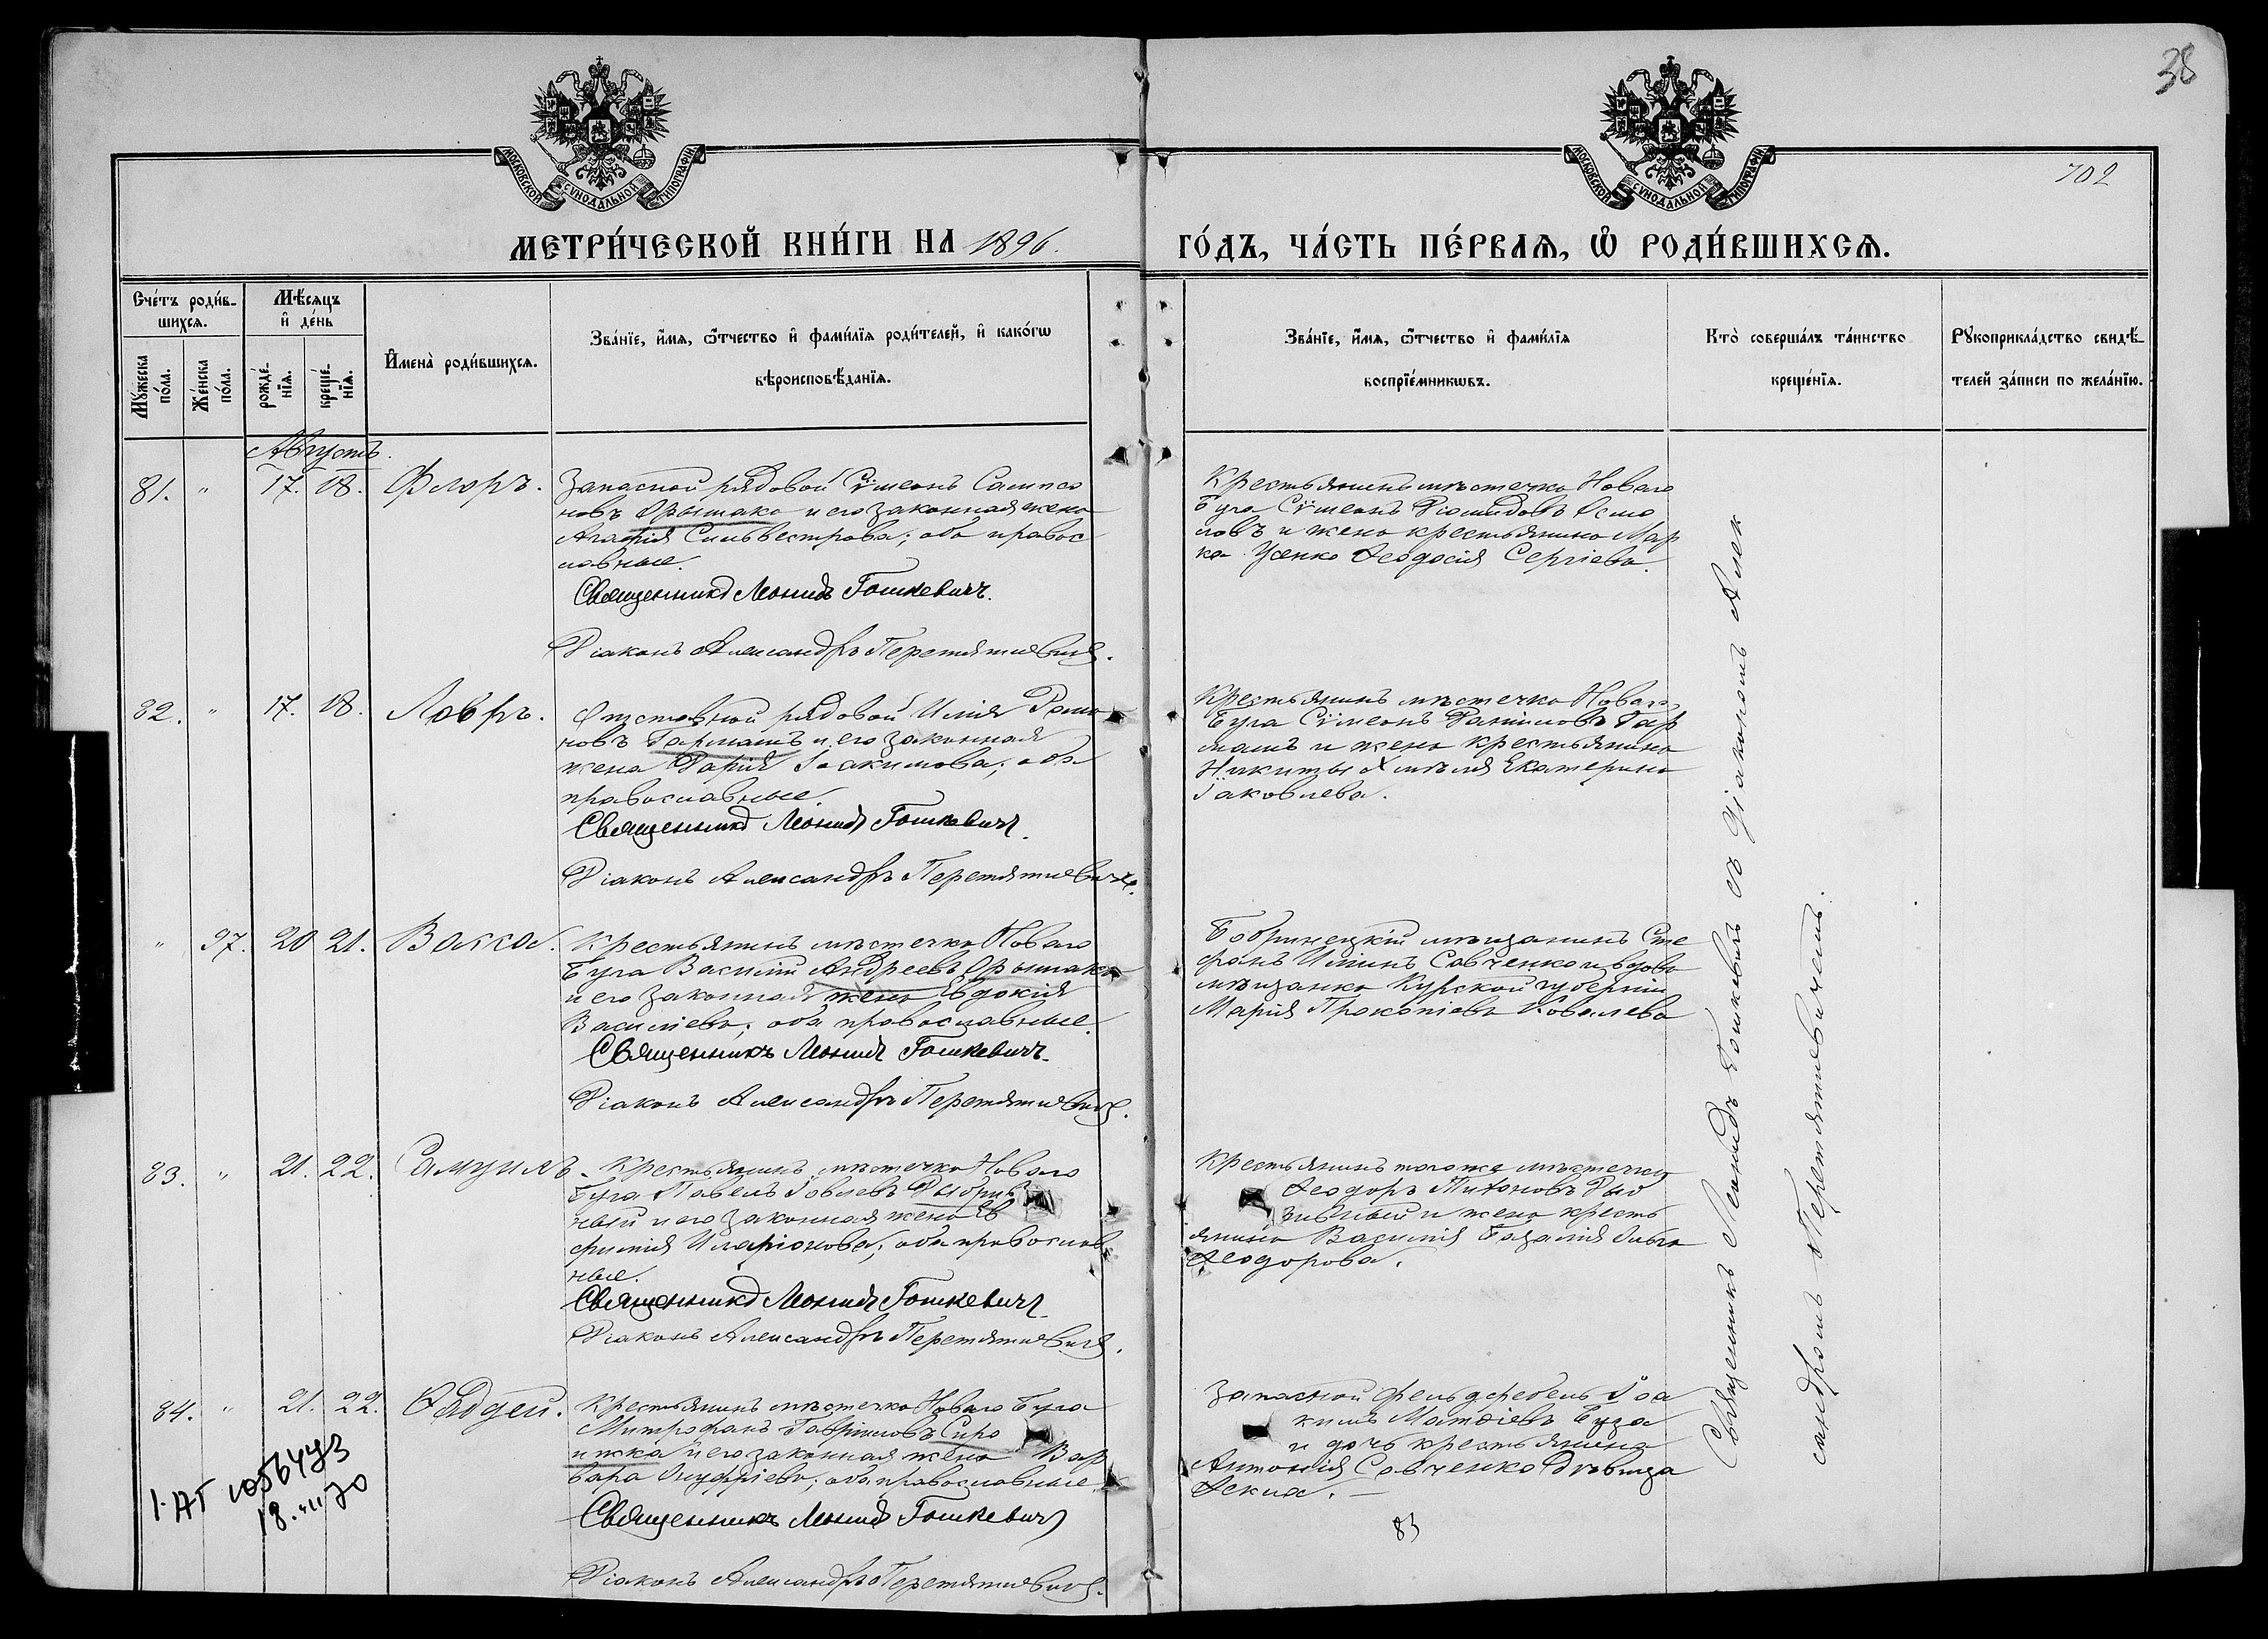 38
МОСКОВСКОЙ СѴНОДАЛЬНОЙ ТИПОГРАФІИ
МОСКОВСКОЙ СѴНОДАЛЬНОЙ ТИПОГРАФІИ
702
МЕТРИ́ЧЕСКОЙ КНИ́ГИ НА 1896.
ГО́ДЪ, ЧА́СТЬ ПЕ́РВАѦ, Ѡ҆ РОДИ́ВШИХСѦ.
Сче́тъ роди́в-
шихсѧ.
Мꙋ́жеска
по́ла.
Же́нска
по́ла.
Мѣ́сѧцъ
и҆ де́нь
рожде́-
нїѧ.
креще́-
нїѧ.
И҆мена̀ роди́вшихсѧ.
Зва́нїе, и҆́мѧ, ѻ҆́тчество и҆ фами́лїѧ роди́телей, и҆ како́гѡ
вѣроисповѣ́данїѧ.
Зва́нїе, и҆́мѧ, ѻ҆́тчество и҆ фами́лїѧ
воспрїе́мникѡвъ.
Кто̀ соверша́лъ та́инство
креще́нїѧ.
Рꙋкоприкла́дство свидѣ́-
телей за́писи по жела́нїю.
Августъ.
81. " 17. 18. Флоръ.
Запасной рядовой Сѵмеонъ Сампсо
новъ Орышака и его законная жена
Агафія Сильвестрова; оба правос
лавные.
Священникъ Леонидъ Гошкевичъ.
Діаконъ Александръ Перетятковичъ.
Крестьянинъ мѣстечка Новаго
Буга Сѵмеонъ
ловъ и жена крестьянина Мар
ка Усенко Ѳеодосія Сергіева.
82. " 17. 18. Лавръ.
Отставной рядовой Илія Рома
новъ Гармашъ и его законная
жена Дарія Іоакимова; оба
православные.
Священникъ Леонидъ Гошкевичъ.
Діаконъ Александръ Перетятковичъ.
Крестьянинъ мѣстечка Новаго
Буга Сѵмеонъ Даніиловъ Гар
машъ и жена крестьянина
Никиты Хмѣля Екатерина
Іаковлева.
" 97. 20 21. Васса.
Крестьянинъ мѣстечка Новаго
Буга Василій Андреевъ Орышака
и его законная жена Евдокія
Василіева; оба православные.
Священникъ Леонидъ Гошкевичъ.
Діаконъ Александръ Перетятковичъ.
Бобринецкій мѣщанинъ Сте
фанъ Иліинъ Савченко и вдова
мѣщанка Курской губерніи
Марія Прокопіева Ковалева
83. " 21. 22. Самуилъ.
Крестьянинъ мѣстечка Новаго
Буга Павелъ Іовлевъ
ный и его законная жена Ев
фимія Иларіонова; оба православ
ные.
Священникъ Леонидъ Гошкевичъ
Діаконъ Александръ Перетятковичъ.
Крестьянинъ того же мѣстечка
Ѳеодоръ Тихоновъ
и жена кресть
янина Василія Ольга
Ѳеодорова.
84. " 21. 22. Ѳаддей.
Крестьянинъ мѣстечка Новаго Буга
Митрофанъ Гавріиловъ Сиро
ижка и его законная жена Вар
вара Онуфріева; оба православные.
Священникъ Леонидъ Гошкевичъ
Діаконъ Александръ Перетятковичъ.
Запасной фельдфебель Іоа
кимъ Матѳіевъ Буза
и дочь крестьянина
Антонія Савченко дѣвица
Ѳекла.
83
Священникъ Леонидъ Гошкевичъ съ діакономъ Алек
сандромъ Перетятковичемъ.